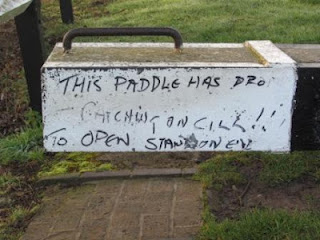 THIS PADDLE HAS DRO
ON CILL!!!
TO OPEN. STAND ON